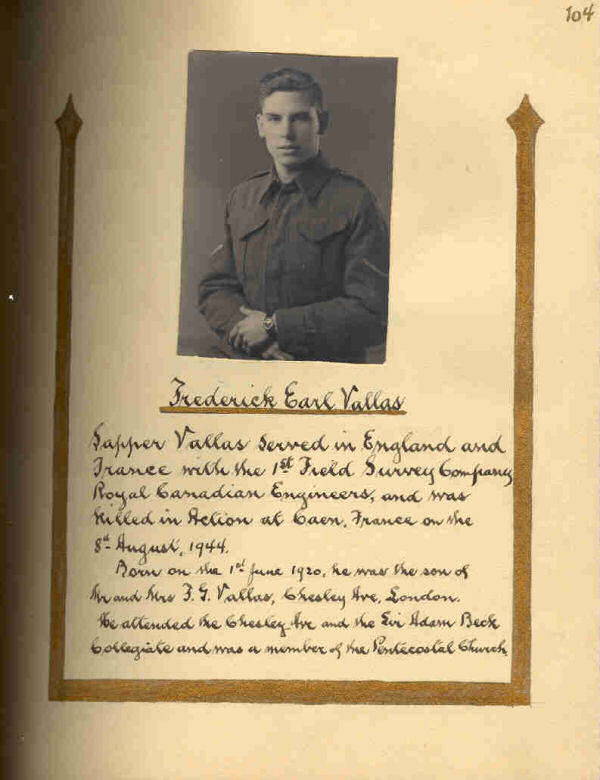 104
Frederick Earl Vallas
Sapper Vallas Served in England and
France with the 1st Field Survey Company
Royal Canadian Engineers, and was
Killed in Action at Caen, France on the
8th August, 1944.
Born on the 1st June 1920, he was the son of
Mr and Mrs F. G. Vallas, Chesley Ave, London.
He attended the Chesley Ave and the Sir Adam Beck
Collegiate and was a member of the Pentecostal Church.